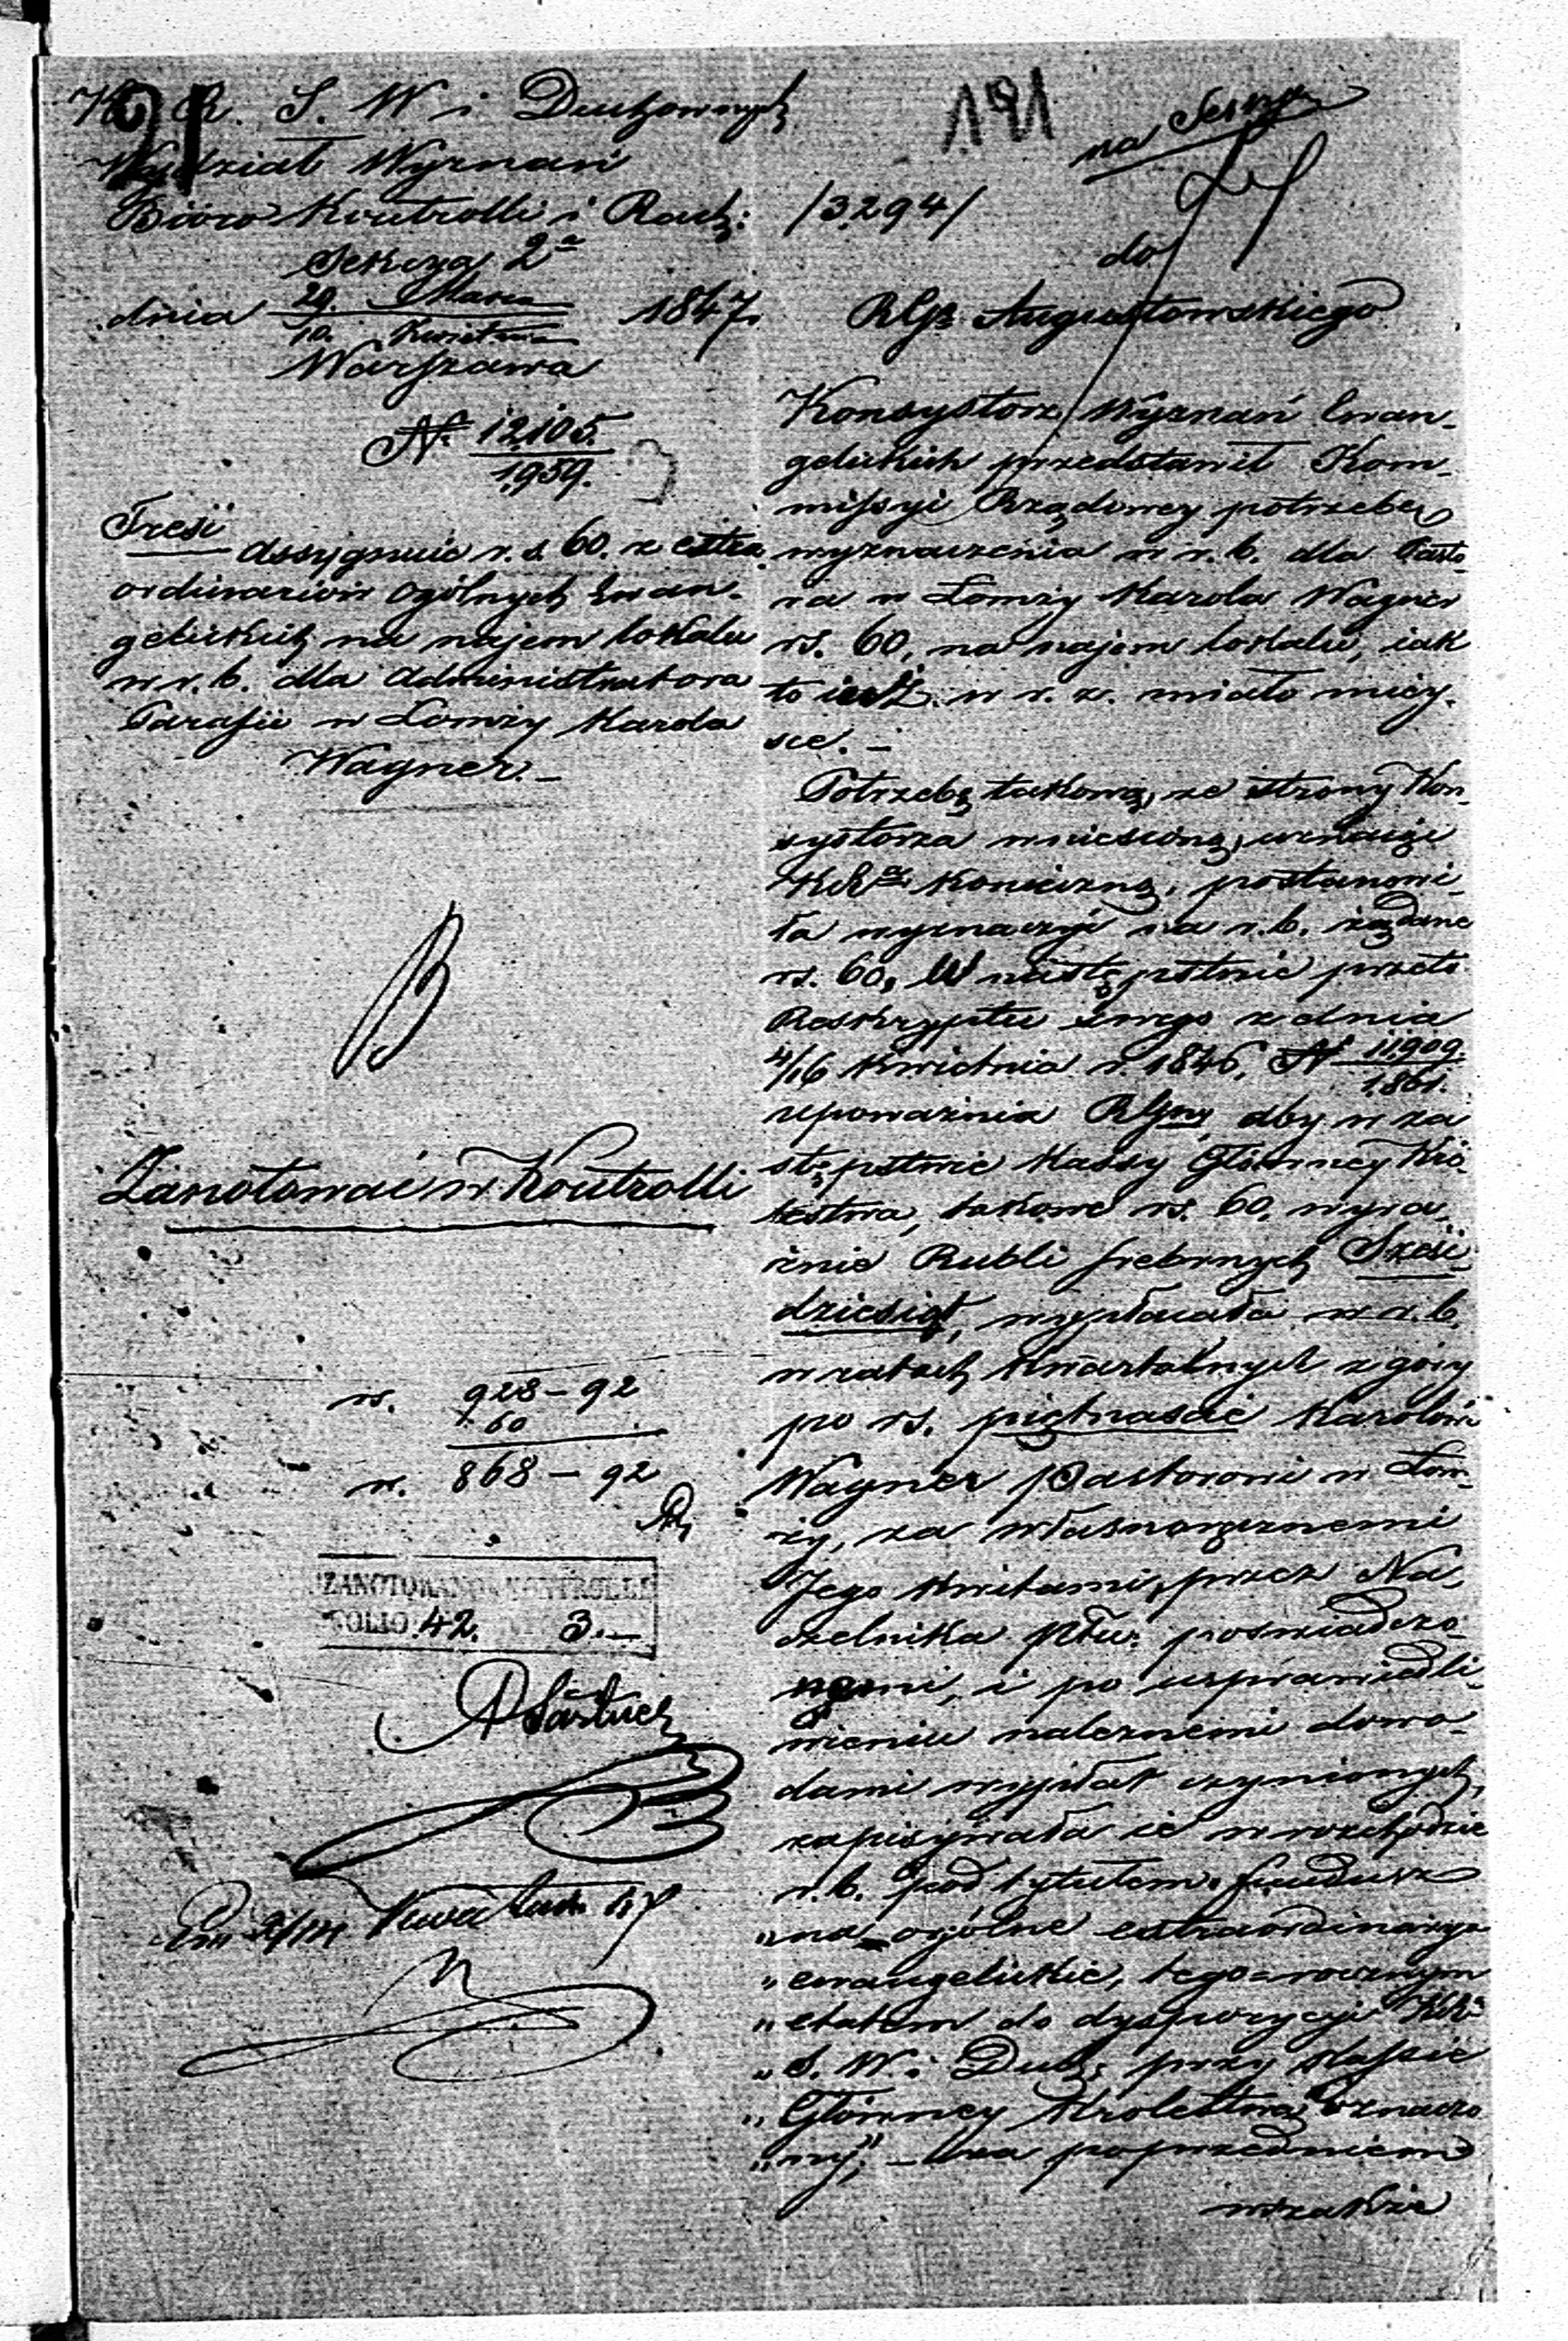 K. R. S. W i Duchownych
Wydział Wyznań
Biuro Kontrolli i Rach:
Sekcya 2ª
dnia 29. Marca / 10. Kwietnia 1847.
Warszawa
N. 12105. / 1959.
Treść
Assygnuie r. s. 60. z extra
ordinariów ogólnych Ewan-
gelickich na najem lokalu
w r. b. dla Administratora
Parafii w Łomży Karola
Wagner. –
Zanotować w Kontrolli
rs. 928 – 92
60
rs. 868 – 92
ZANOTOWANO W KONTROLLI
FOLIO 42. 3. –
191
na Sessyi
/3294/
do
RGo Augustowskiego
Konsystorz Wyznań Ewan-
gelickich przedstawił Kom-
missyi Rządowey potrzebę
wyznaczenia w r. b. dla Pasto-
ra w Łomży Karola Wagner
rs. 60, na najem lokalu, iak
to ież w r. z. miało miey-
sce. –
Potrzebę takową, ze strony Kon-
systorza wniesioną, uznaiąc
KRa konieczną, postanowi-
ła wyznaczyć na r. b. żądane
rs. 60, W następstwie przeto
Reskryptu swego z dnia
4/16 Kwietnia r. 1846, N 11,909. / 1,861.
upoważnia RGny, aby w za
stępstwie Kassy Główney Kró-
lestwa, takowe rs. 60. wyra-
źnie Rubli srebrnych Sześć-
dziesiąt, wypłacała w r. b.
w ratach kwartalnych z góry
po rs. piętnaście Karolowi
Wagner Pastorowi w Łom-
ży, za własnoręcznemi
Jego kwitami, przez Na-
czelnika Ptu: poświadczo-
nemi, i po usprawiedli-
wieniu należnemi dowo-
dami wypłat czynionych,
zapisywała ie w rozchodzie
r. b. pod tytułem „fundusz
„na ogólne extraordinarya
„ewangelickie, tego-rocznym
„etatem do dyspozycyi KR
„S. W. i Duch: przy Kassie
„Główney Królestwa oznaczo
„ny”, – za poprzedniem
wszakże